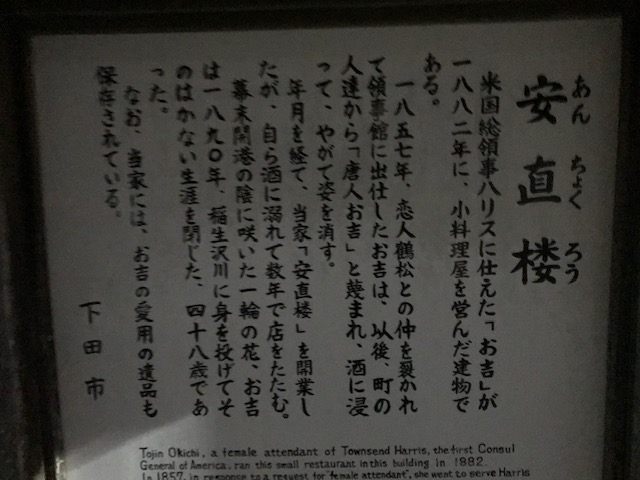 安直楼
あん ちょく ろう
米国総領事ハリスに仕えた「お吉」が
一八八二年に、小料理屋を営んだ建物で
ある。
一八五七年、恋人鶴松との仲を裂かれ
て領事館に出仕したお吉は、以後、町の
人達から「唐人お吉」と蔑まれ、酒に浸
って、やがて姿を消す。
年月を経て、当家「安直楼」を開業し
たが、自ら酒に溺れて数年で店をたたむ。
幕末開港の陰に咲いた一輪の花、お吉
は一八九〇年、稲生沢川に身を投げてそ
のはかない生涯を閉じた、四十八歳であ
った。
なお、当家には、お吉の愛用の遺品も
保存されている。
下田市
Tojin Okichi, a female attendant of Townsend Harris, the first Consul
General of America, ran this small restaurant in this building in 1882.
In 1857, in response to a request for "female attendant", she went to serve Harris